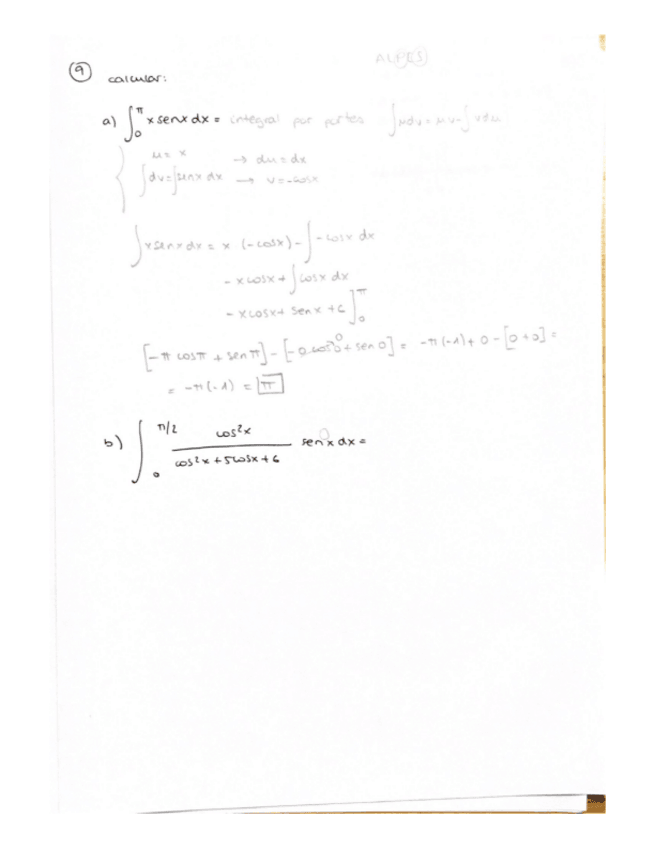 ALPES
9 calcular:
a) ∫₀^π x senx dx = integral por partes ∫udv = uv - ∫vdu
{ u = x → du = dx
∫dv = ∫senx dx → v = -cosx
∫x senx dx = x · (-cosx) - ∫-cosx dx
- xcosx + ∫cosx dx
- xcosx + senx + C ]₀^π
[-π cosπ + sen π] - [-0 cos 0 + sen 0] = -π(-1) + 0 - [0+0] =
0
= -π(-1) = π
b) ∫₀^π/2 cos²x / (cos²x + 5cosx + 6) senx dx =